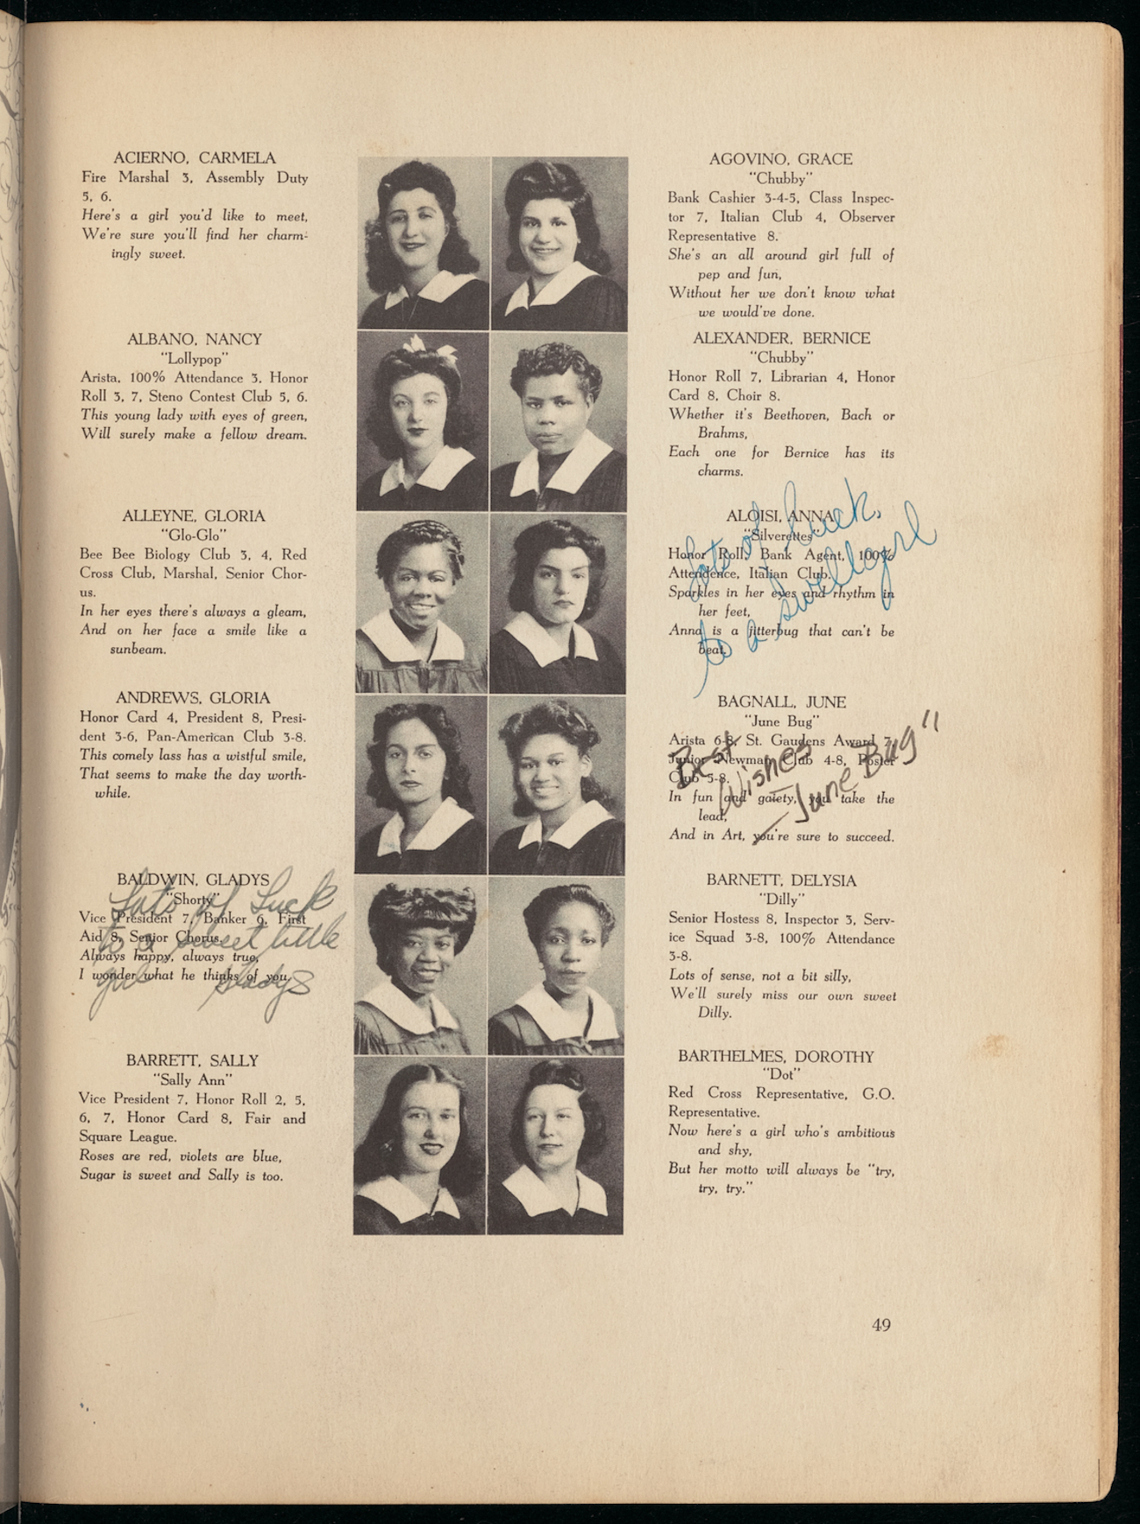 ACIERNO, CARMELA
Fire Marshal 3, Assembly Duty
5, 6.
Here's a girl you'd like to meet,
We're sure you'll find her charm-
ingly sweet.
ALBANO, NANCY
"Lollypop"
Arista, 100% Attendance 3, Honor
Roll 3, 7, Steno Contest Club 5, 6.
This young lady with eyes of green,
Will surely make a fellow dream.
ALLEYNE, GLORIA
"Glo-Glo"
Bee Bee Biology Club 3, 4, Red
Cross Club, Marshal, Senior Chor-
us.
In her eyes there's always a gleam,
And on her face a smile like a
sunbeam.
ANDREWS, GLORIA
Honor Card 4, President 8, Presi-
dent 3-6, Pan-American Club 3-8.
This comely lass has a wistful smile,
That seems to make the day worth-
while.
BALDWIN, GLADYS
"Shorty"
Vice President 7, Banker 6, First
Aid 8, Senior Chorus.
Always happy, always true,
I wonder what he thinks of you.
Lots of Luck
to a sweet little
girl Gladys
BARRETT, SALLY
"Sally Ann"
Vice President 7, Honor Roll 2, 5,
6, 7, Honor Card 8, Fair and
Square League.
Roses are red, violets are blue,
Sugar is sweet and Sally is too.
AGOVINO, GRACE
"Chubby"
Bank Cashier 3-4-5, Class Inspec-
tor 7, Italian Club 4, Observer
Representative 8.
She's an all around girl full of
pep and fun,
Without her we don't know what
we would've done.
ALEXANDER, BERNICE
"Chubby"
Honor Roll 7, Librarian 4, Honor
Card 8, Choir 8.
Whether it's Beethoven, Bach or
Brahms,
Each one for Bernice has its
charms.
ALOISI, ANNA
"Silverettes"
Honor Roll, Bank Agent, 100%
Attendence, Italian Club.
Sparkles in her eyes and rhythm in
her feet,
Anna is a jitterbug that can't be
beat.
Lots of luck
to a swell girl
BAGNALL, JUNE
"June Bug"
Arista 6-8, St. Gaudens Award 7,
Junior Newman Club 4-8, Poster
Club 5-8.
In fun and gaiety, you take the
lead,
And in Art, you're sure to succeed.
Best
Wishes
—June Bug"
BARNETT, DELYSIA
"Dilly"
Senior Hostess 8, Inspector 3, Serv-
ice Squad 3-8, 100% Attendance
3-8.
Lots of sense, not a bit silly,
We'll surely miss our own sweet
Dilly.
BARTHELMES, DOROTHY
"Dot"
Red Cross Representative, G.O.
Representative.
Now here's a girl who's ambitious
and shy,
But her motto will always be "try,
try, try."
49